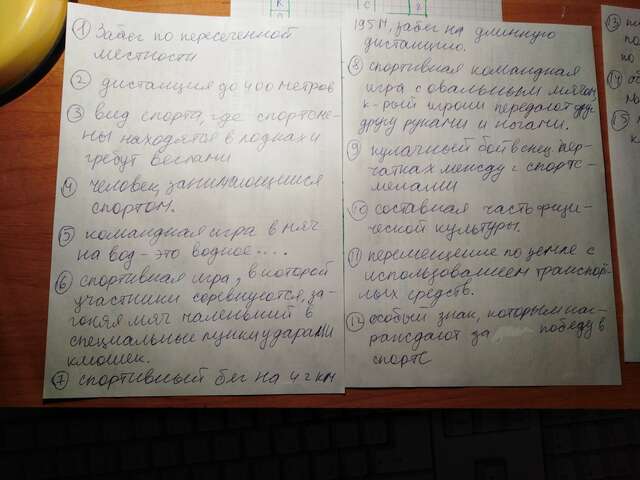 ① Забег по пересеченной
местности
② дистанция до 400 метров
③ вид спорта, где спортсме-
ны находятся в лодках и
гребут веслами
④ человек, занимающийся
спортом.
⑤ командная игра в мяч
на вод - это водное....
⑥ спортивная игра, в которой
участники соревнуются, за-
гоняя мяч маленький в
специальные лунки ударами
клюшек.
⑦ спортивный бег на 42 км
195 м, забег на длинную
дистанцию.
⑧ спортивная командная
игра с овальным мячом
к-рый игроки передают друг
другу руками и ногами.
⑨ кулачный бой в спец пер-
чатках между 2 спортс-
менами
⑩ составная часть физи-
ческой культуры.
⑪ перемещение по земле с
использованием транспорт-
ных средств.
⑫ особый знак, которым наг-
раждают за победу в
спорте